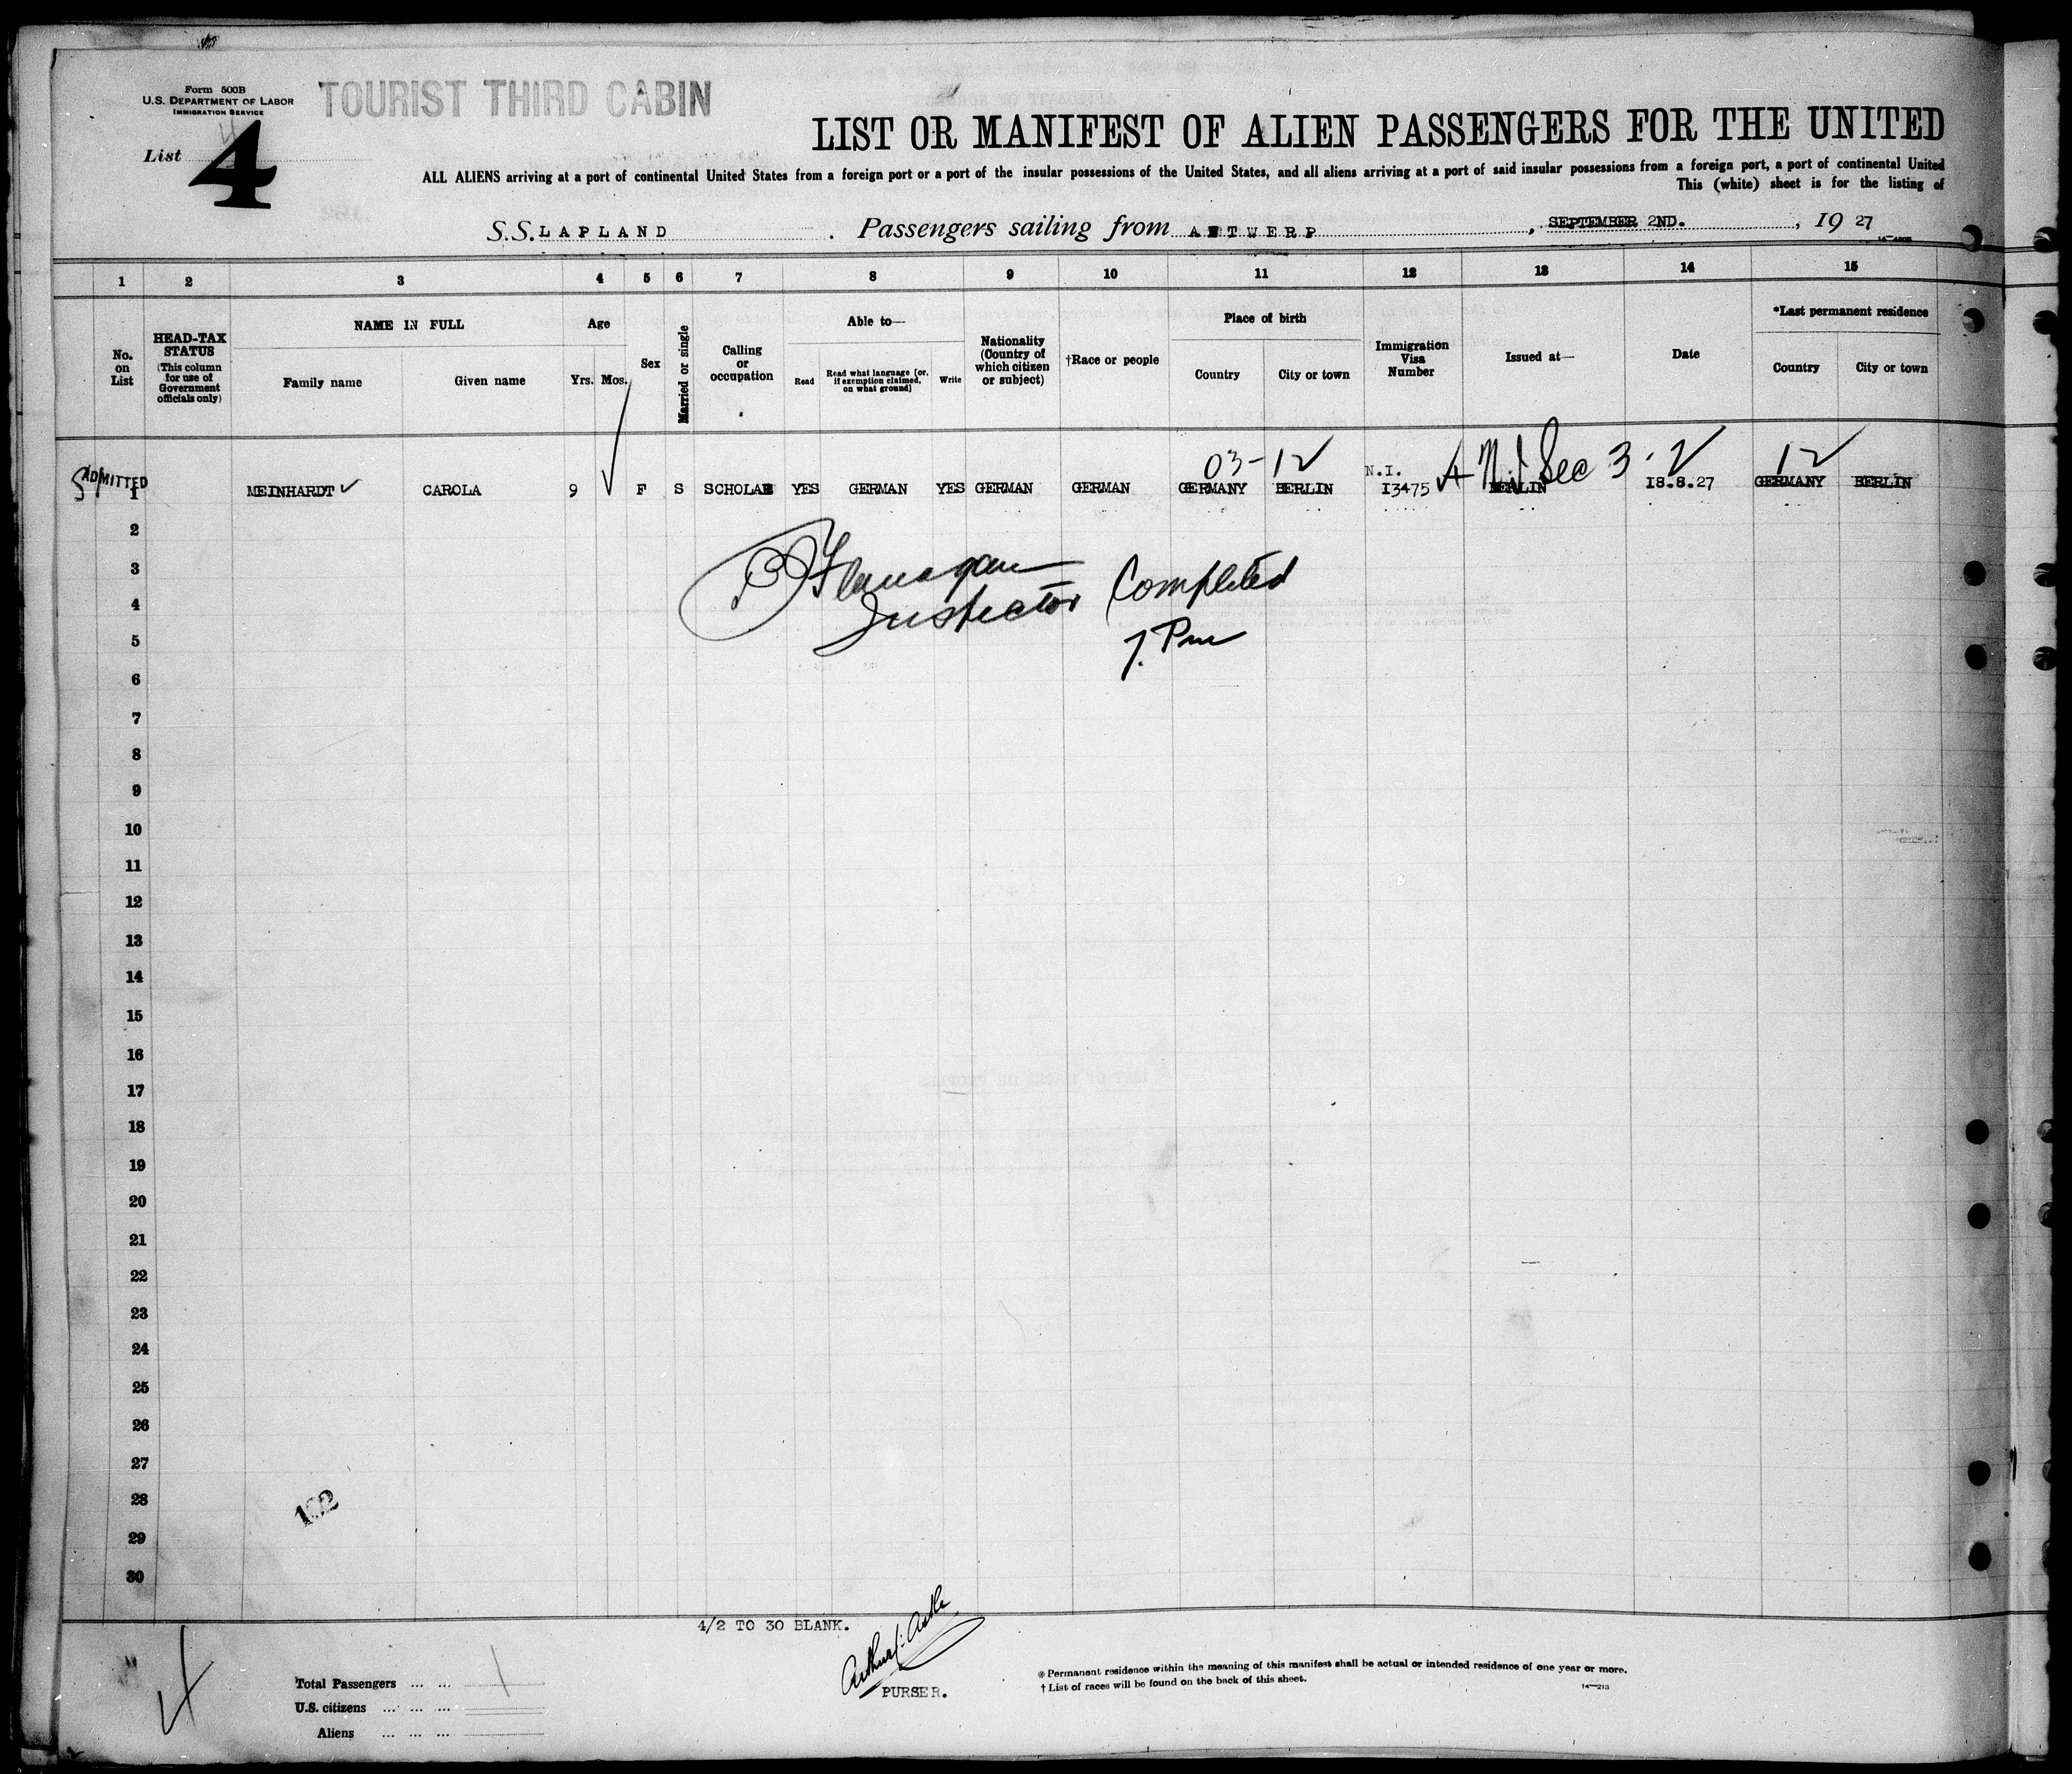 Form 500B
U.S. DEPARTMENT OF LABOR
IMMIGRATION SERVICE
TOURIST THIRD CABIN
List 4
LIST OR MANIFEST OF ALIEN PASSENGERS FOR THE UNITED
ALL ALIENS arriving at a port of continental United States from a foreign port or a port of the insular possessions of the United States, and all aliens arriving at a port of said insular possessions from a foreign port, a port of continental United
This (white) sheet is for the listing of
S.S. LAPLAND . Passengers sailing from ANTWERP , SEPTEMBER 2ND. , 19 27
1 2 3 4 5 6 7 8 9 10 11 12 13 14 15
No. on List
HEAD-TAX STATUS (This column for use of Government officials only)
NAME IN FULL
Family name
Given name
Age
Yrs. Mos.
Sex
Married or single
Calling or occupation
Able to—
Read
Read what language [or, if exemption claimed, on what ground]
Write
Nationality (Country of which citizen or subject)
†Race or people
Place of birth
Country
City or town
Immigration Visa Number
Issued at—
Date
*Last permanent residence
Country
City or town
03-12
N.I.
Sec 3-2
12
ADMITTED
1 MEINHARDT CAROLA 9 F S SCHOLAR YES GERMAN YES GERMAN GERMAN GERMANY BERLIN I3475 BERLIN I8.8.27 GERMANY BERLIN
2
3
4
5
6
7
8
9
10
11
12
13
14
15
16
17
18
19
20
21
22
23
24
25
26
27
28
29
30
Flanagan
Inspector
Completed
7. Pm
4/2 TO 30 BLANK.
4
PURSER.
Total Passengers ... ... 1
U.S. citizens ... ... ...
Aliens ... ... ...
* Permanent residence within the meaning of this manifest shall be actual or intended residence of one year or more.
† List of races will be found on the back of this sheet.
14—213